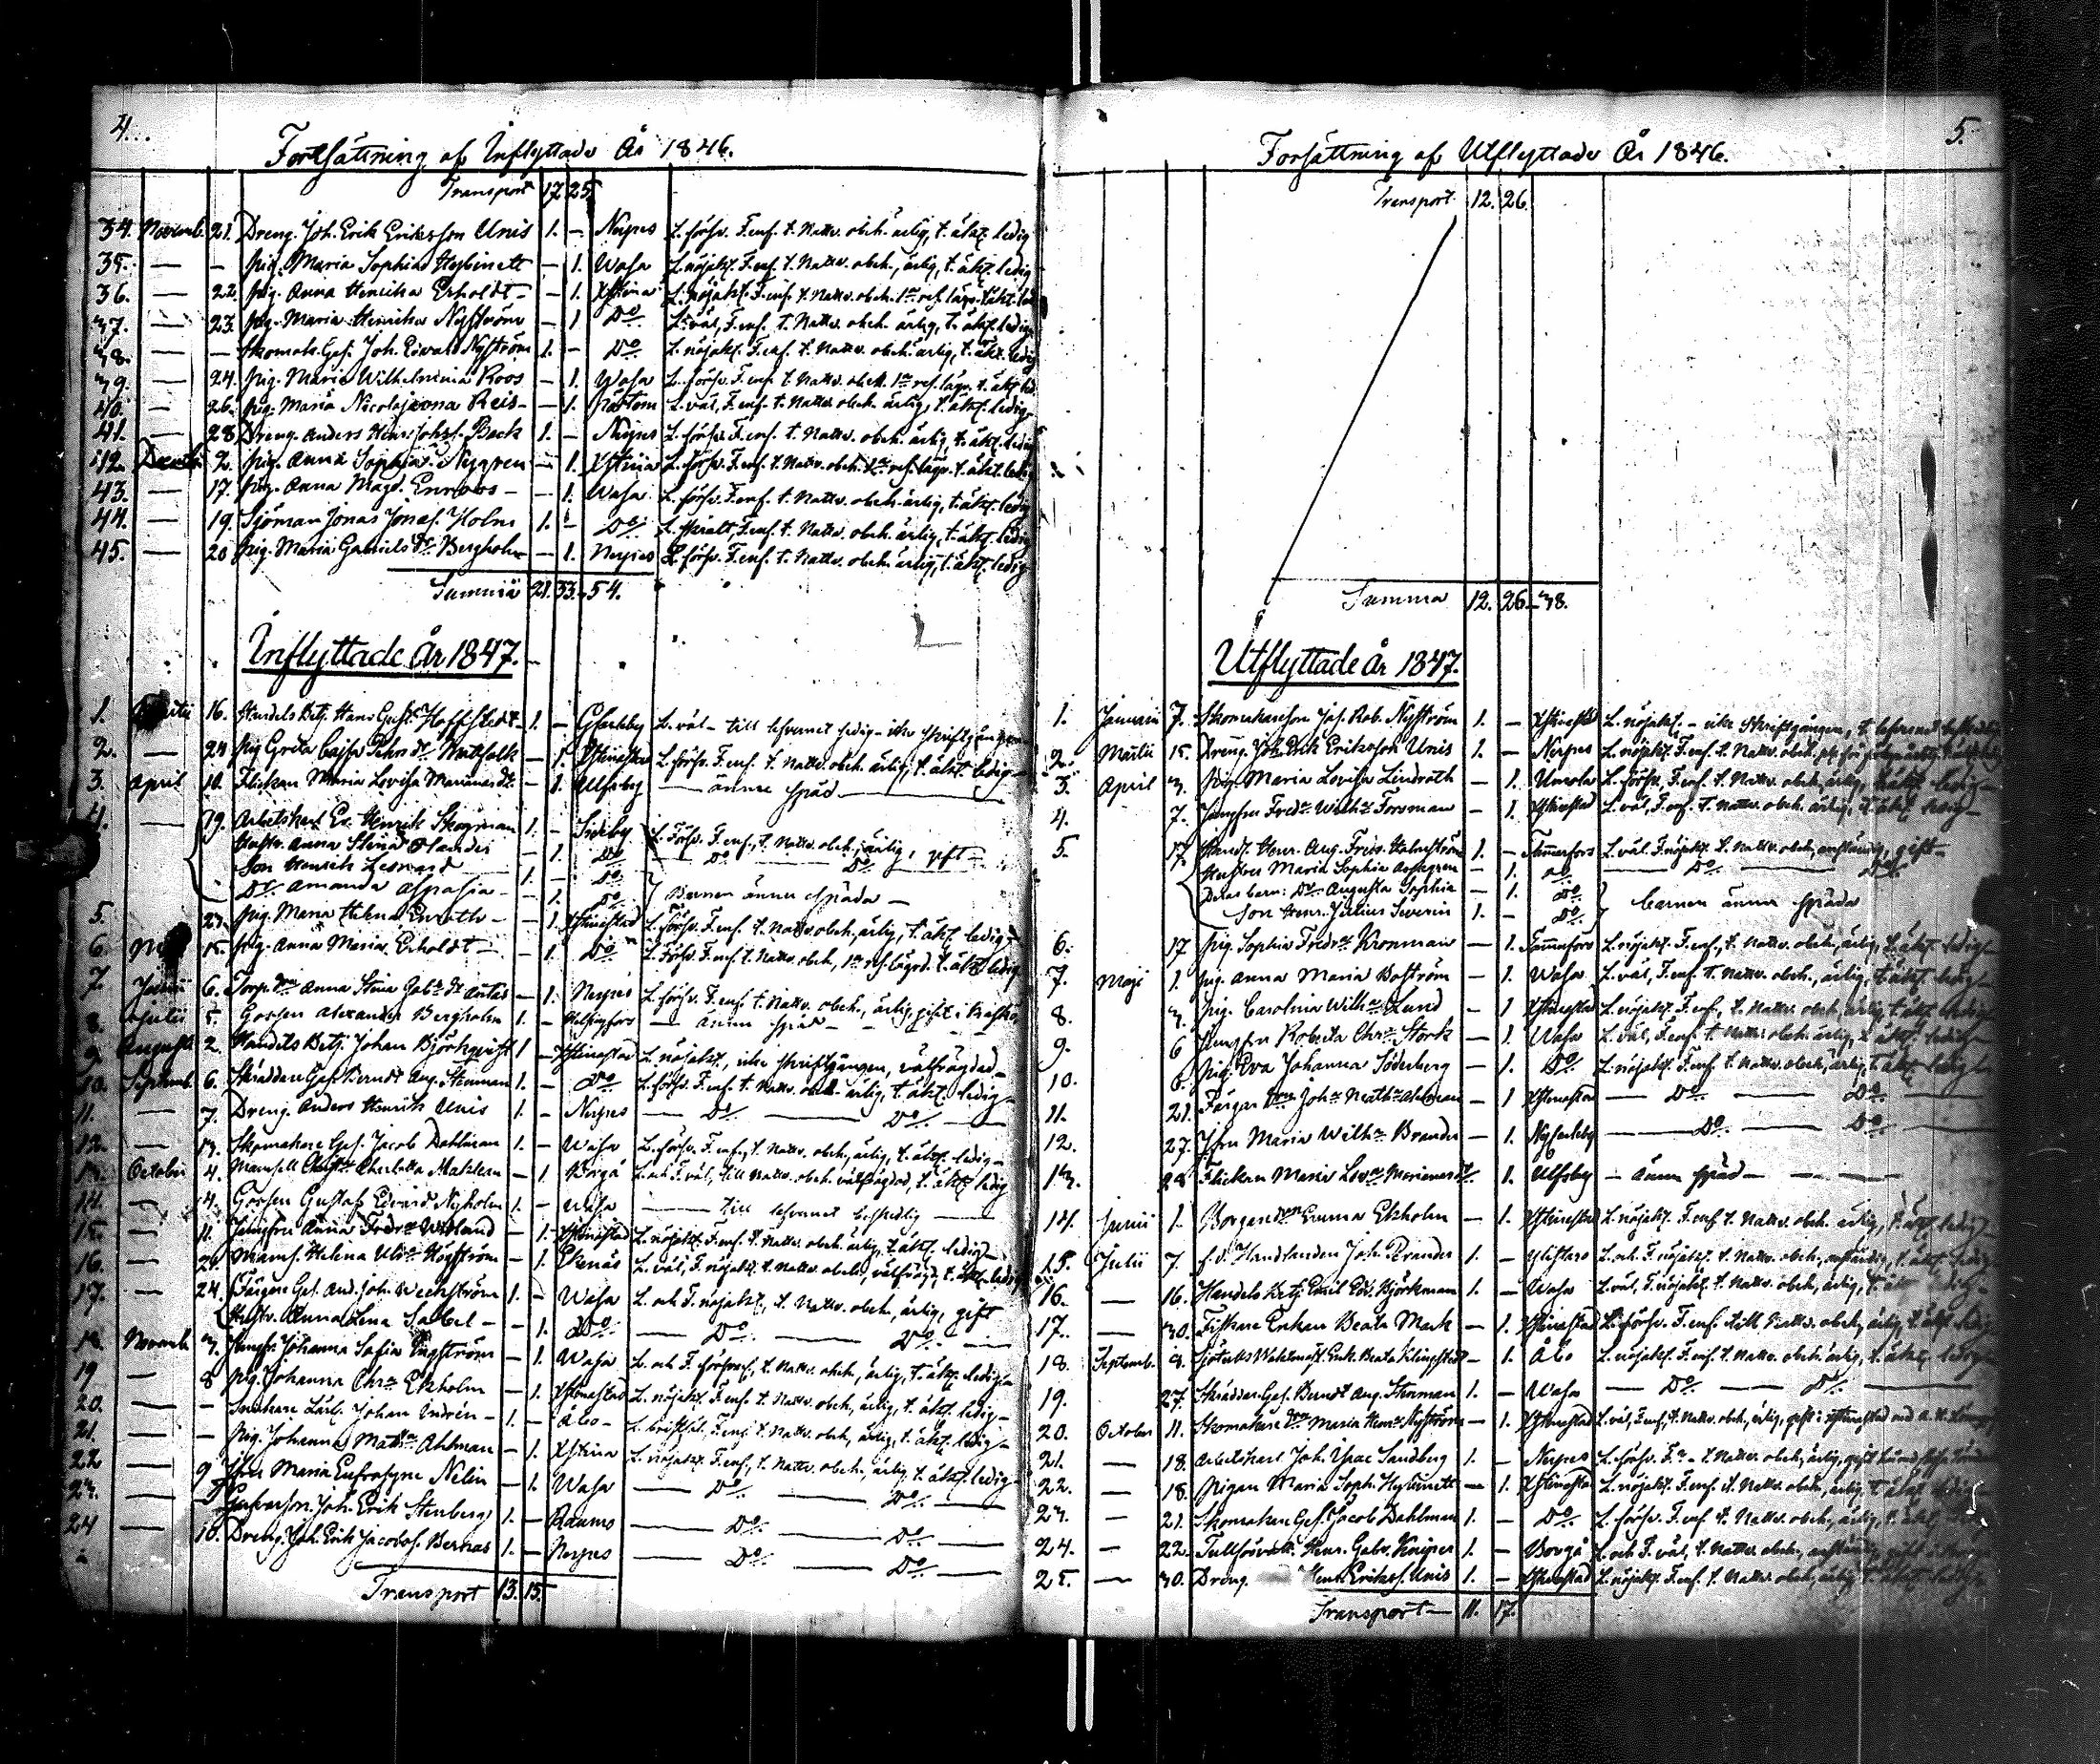 4.
Fortsättning af Inflyttade År 1846.
Transport 17. 25.
34. Novemb. 21. Dreng. Joh. Erik Eriksson Unis 1. – Nerpes L. försv. F. enf. t. Nattv. obeh. ärlig, t. äkt. ledig
35. — – Pig. Maria Sophia Hybinett – 1. Wasa L. nöjakt. F. enf. t. Nattv. obeh., ärlig, t. äkt. ledig
36. — 22. Pig. Anna Henrika Erholdt – – 1. Xstina L. nöjakt. F. enf. t. Nattv. obeh. 1a resa lägr. t. äkt. led
37. — 23. Pig. Maria Henrika Nyström – 1 Do L. väl, F. enf. t. Nattv. obeh. ärlig, t. äkt. ledig
38. — – Skomak. Ges. Joh. Edvard Nyström 1. – Do L. nöjakt. F. enf. t. Nattv. obeh. ärlig, t. äkt. ledig
39. — 24. Pig. Maria Wilhelmina Roos – 1. Wasa L. försv. F. enf. t. Nattv. obeh. 1a res. lägr. t. äkt. led.
40. — 26. Pig. Maria Nicolajeona Reis – – 1. Pörtom L. väl, F. enf. t. Nattv. obeh. ärlig, t. äkt. ledig
41. — 28 Dreng. Anders Henr. Johss. Back 1. – Nerpes L. försv. F. enf. t. Nattv. obeh. ärlig t. äkt. ledig
42. Decemb. 2. Pig. Anna Sophia Nygren – 1. Xstina L. försv. F. enf. t. Nattv. obeh. 1a res. lägr. t. äkt. ledig
43. — 17. Pig. Anna Magd. Enroos – – 1. Wasa L. försv. F. enf. t. Nattv. obeh. ärlig, t. äkt. ledig
44. — 19. Sjöman Jonas Jonas. Holm 1. – Do L. F. enf. t. Nattv. obeh. ärlig, t. äkt. ledig
45. — 20 Pig. Maria Gabriels Dr Bergholm – 1. Nerpes L. försv. F. enf. t. Nattv. obeh. ärlig, t. äkt. ledig
Summa 21. 33. – 54.
Inflyttade År 1847.
1. 16. Handels Betj. Hans Gust. Hoffstedt – 1. – L. väl – till lefvernet ledig – icke skriftgången
2. — 24 Pig Greta Cajsa – 1. Xstinestad L. försv. F. enf. t. Nattv. obeh. ärlig, t. äkt. ledig
3. April 10. Flickan Maria Lovisa – 1. Ulfsby — ännu späd —
4. — 19. Arbetskarl Er. Henrik Skogman 1. – Sideby L. Försv. F. enf., t. Nattv. obeh., ärlig, gift –
Hustr. Anna Stina Olander – 1. Do — Do — Do
Son Henrik Leonard 1. – Do
Dr. Amanda Aspasia – – 1. Do } Barnen ännu späda –
5. 27. Pig. Maria Helena Enroth – – 1. Xstinestad L. försv. F. enf. t. Nattv. obeh., ärlig, t. äkt. ledig
6. 15. Pig. Anna Maria Erholdt – – 1. Do L. Försv. F. enf. t. Nattv. obeh., 1a res. lägrd. t. äkt. ledig
7. Junii 6. Torp. Dn Anna Stina Gabr. Dr Antas – 1. Nerpes L. försv. F. enf. t. Nattv. obeh., ärlig, gift i
8. Julii 5. Gossen Alexander Bergholm 1. – Helsingfors — ännu späd –
9. Augusti 2. Handels Betj. Johan Björkqvist 1 – Xstinestad L. nöjakt., icke skriftgången, välfrägdad –
10. Septemb. 6. Skräddare Ges. Berndt Aug. Stenman 1. – Do L. försv. F. enf. t. Nattv. obeh. ärlig, t. äkt. ledig –
11. — 7. Dreng. Anders Henrik Unis 1. – Nerpes — Do — Do —
12. — 13. Skomakare Ges. Jacob Dahlman 1. – Wasa L. försv. F. enf., t. Nattv. obeh., ärlig, t. äkt. ledig –
13. October 4. Mamsell Charlotta – 1. Borgå L. och F. väl, till Nattv. obeh. välfrägdad, t. äkt. ledig
14. — 4. Gossen Gustaf Edvard Nyholm 1. – Wasa — till lefvernet beskedlig —
15. — 11. Jungfru Anna Fredr. – 1. Xstinestad L. nöjakt. F. enf. t. Nattv. obeh. ärlig, t. äkt. ledig –
16. — 21. Mams. Helena Ulr. Nyström – 1. Ekenäs L. väl, F. nöjakt. t. Nattv. obeh., välfrägd, t. äkt. ledig
17. — 24. Färgare Ges. And. Joh. Weckström 1. – Wasa L. och F. nöjakt., t. Nattv. obeh., ärlig, gift
Hustr. Anna Lena Sabel – – 1. Do — Do — Do —
18. Novemb. 3. Jungfr. Johanna Sofia Engström – 1. Wasa L. och F. försvarl. t. Nattv. obeh., ärlig, t. äkt. ledig –
19 — 8 Pig. Johanna Chra Ekholm – 1. Xstinestad L. nöjakt. F. enf., t. Nattv. obeh., ärlig, t. äkt. ledig –
20. — – Snickare Lärl. Johan Indrén – 1. – Åbo – L. F. enf. t. Nattv. obeh., ärlig, t. äkt. ledig –
21. — – Pig. Johanna Mattsn Ahlman – 1. Xstina L. nöjakt. F. enf., t. Nattv. obeh., ärlig, t. äkt. ledig –
22 — 9 Jfru Maria Eufrosyne Nelin – 1. Wasa — Do — Do —
23. — Joh. Erik Stenberg 1. – Raumo — Do — Do —
24 — 10. Dreng. Joh. Erik Jacobss. Bernas 1. – Nerpes — Do — Do —
Transport 13. 15.
5.
Forsättning af Utflyttade År 1846.
Transport 12. 26.
Summa 12. 26. – 38.
Utflyttade år 1847.
1. Januarii 7. Skomakareson Joh. Rob. Nyström 1. – Xstinestad L. nöjakt. – icke Skriftgången, t. lefvernet beskedlig
2. Martii 15. Dreng. Joh. Erik Eriksson Unis 1. – Nerpes L. nöjakt. F. enf. t. Nattv. obeh.
3. April 3. Pig. Maria Lovisa Lindroth – 1. L. försv. F. enf. t. Nattv. obeh. ärlig, t. äkt. ledig –
4. 7. Jungfru Fredr. Wilh. Forsman – 1. Xstinestad L. väl, F. enf. t. Nattv. obeh. ärlig, t. äkt. ledig –
5. 17. Handl. Henr. Aug. Fredr. Holmström 1. – Tammerfors L. väl. F. nöjakt. t. Nattv. obeh., anständig, gift –
Hustru Maria Sophia – 1. Do — Do — Do
Deras barn: Dr Augusta Sophia – 1. Do
Son Henr. Julius Severin 1. – Do } barnen ännu späda
6. 17 Pig. Sophia Fredr. Kronman – 1. Tammerfors L. nöjakt. F. enf., t. Nattv. obeh., ärlig, t. äkt. ledig –
7. Maji 1. Pig. Anna Maria Boström – 1. Wasa L. väl, F. enf. t. Nattv. obeh., ärlig, t. äkt. ledig –
8. 3. Pig. Carolina Wilha Lund – 1 Xstinestad L. nöjakt. F. enf., t. Nattv. obeh., ärlig, t. äkt. ledig
9. 6 Jungfru Roberta Chra Stork – 1 Wasa L. väl, F. enf. t. Nattv. obeh. ärlig, t. äkt. ledig –
10. 6. Pig. Eva Johanna Söderberg – 1. Do L. nöjakt. F. enf. t. Nattv. obeh., ärlig, t. äkt. ledig
11. 21. Färgar Dn Joha Ahlman – 1 Xstinestad — Do — Do —
12. 27. Jfru Maria Wilha Brander – 1. — Do — Do —
13. 28 Flickan Maria 1. Ulfsby – ännu späd –
14. Junii 1. Borgare Dn Emma Ekholm – 1. Xstinestad L. nöjakt. F. enf. t. Nattv. obeh. ärlig, t. äkt. ledig –
15. Julii 7. f.d. Handlanden Joh. Brander 1. – L. och F. nöjakt. t. Nattv. obeh., anständig, t. äkt.
16. — 16. Handels Betj. Emil Edv. Björkman 1. – Wasa L. väl, F. nöjakt. t. Nattv. obeh., ärlig, t.
17. — 30. Fiskare Enkan Beata Mark – 1. Xstinestad L. försv. F. enf. till Nattv. obeh., ärlig, t. äkt.
18. Septemb. 8. Enk. Beata Klingstedt – 1. Åbo L. nöjakt. F. enf. t. Nattv. obeh. ärlig, t. äkt. ledig
19. 27. Skräddare Ges. Berndt Aug. Stenman 1. – Wasa — Do — Do —
20. October 11. Skomakare Dn Maria Henr. Nyström – 1. Xstinestad L. väl, F. enf., t. Nattv. obeh., ärlig, gift i Xstinestad
21. — 18. Arbetskarl Joh. Isac Sandberg 1. – Nerpes L. försv. t. Nattv. obeh., ärlig, gift
22. — 18. Pigan Maria Soph. Hybinett – 1. Xstinestad L. nöjakt. F. enf. t. Nattv. obeh., ärlig, t. äkt. ledig
23. — 21. Skomakare Ges. Jacob Dahlman 1. – Do L. försv. F. enf. t. Nattv. obeh., ärlig, t. äkt.
24. — 22. Henr. Gabr. 1. – Borgå L. och F. väl, t. Nattv. obeh., anständig
25. — 30. Dreng. Henr. Erikss. Unis 1. – Xstinestad L. nöjakt. F. enf. t. Nattv. obeh., ärlig
Transport – 11. 17.